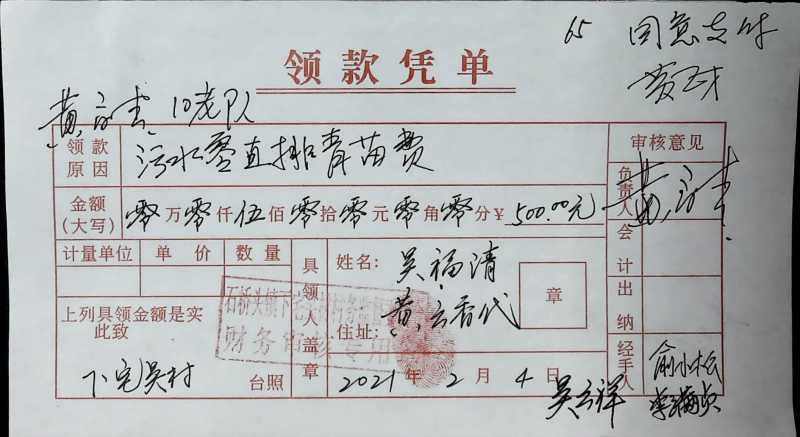 65 同意支付
领款凭单
10老队
领款原因 污水零直排青苗费
审核意见
金额(大写) 零万零仟伍佰零拾零元零角零分¥500.00元
负责人
计量单位 单价 数量
具领人盖章
姓名: 吴福清
章
会计
上列具领金额是实
此致
住址: 黄云香代
出纳
财务审核专用
下宅吴村 台照
2021年2月4日
吴云祥
经手人 俞小松